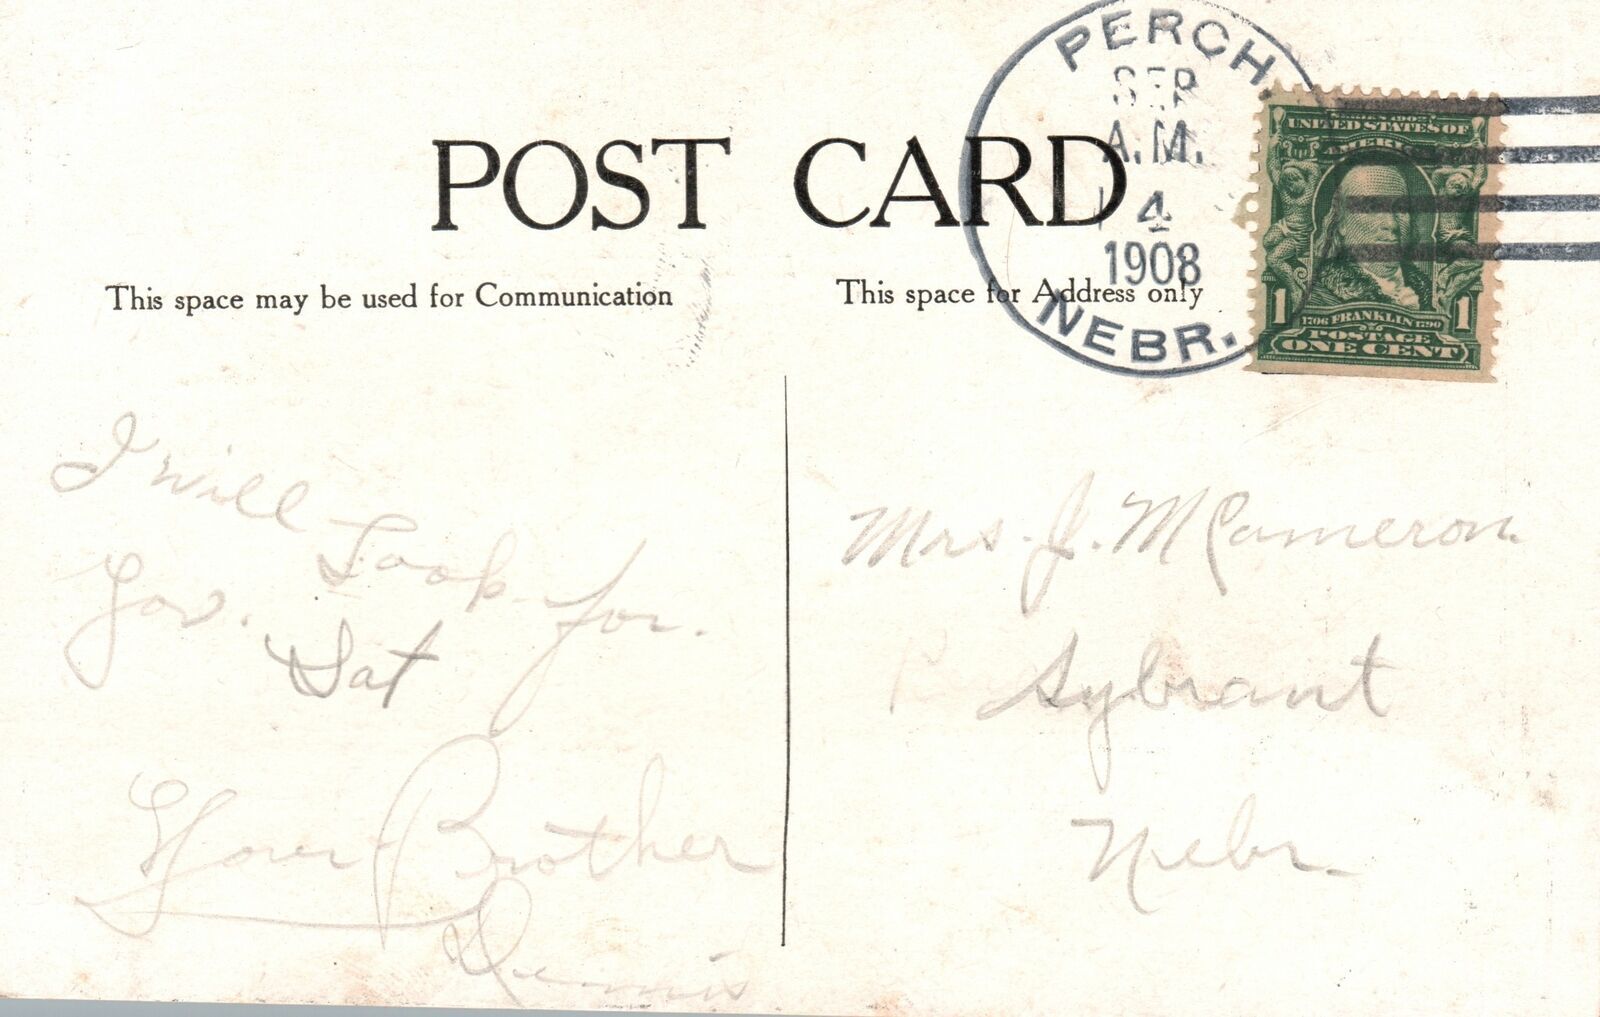 POST CARD
This space may be used for Communication
This space for Address only
PERCH,
SEP
A.M.
4
1908
NEBR.
SERIES 1902
UNITED STATES OF
AMERICA
1 1706 FRANKLIN 1790 1
POSTAGE
ONE CENT
I will Look for
you. Sat
Your Brother
Dennis
Mrs. J. McCameron.
Sybrant
Nebr.